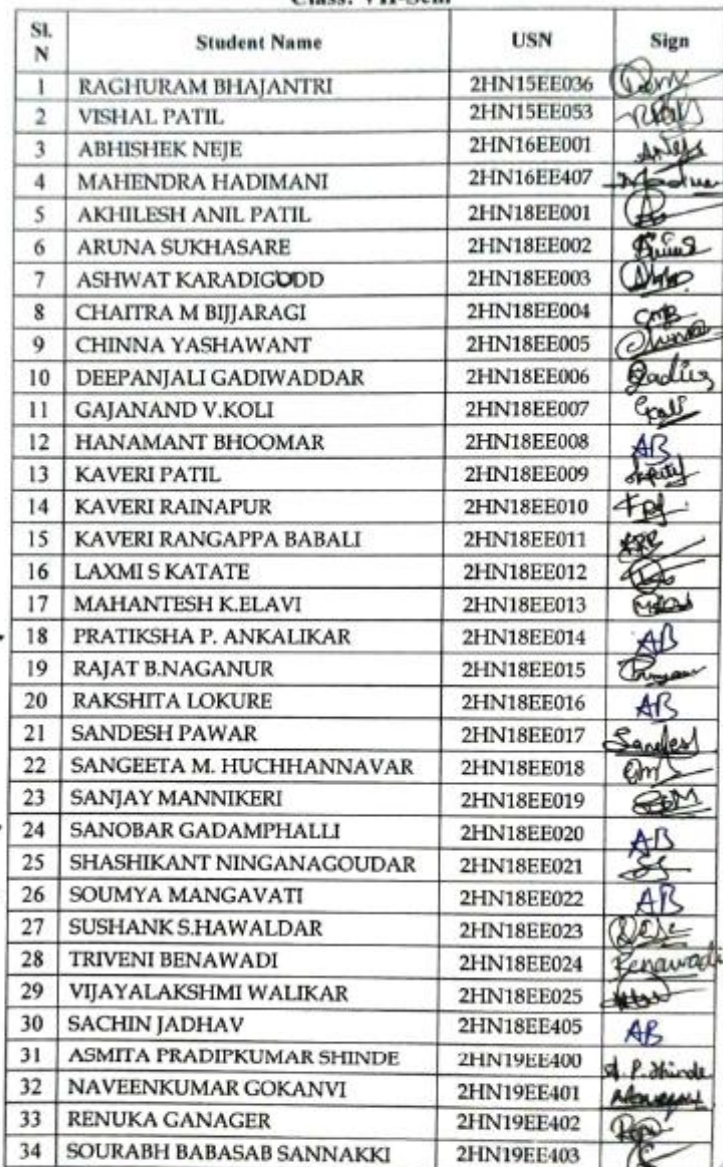 Class: VII-Sem
Sl. N Student Name USN Sign
1 RAGHURAM BHAJANTRI 2HN15EE036
2 VISHAL PATIL 2HN15EE053
3 ABHISHEK NEJE 2HN16EE001
4 MAHENDRA HADIMANI 2HN16EE407
5 AKHILESH ANIL PATIL 2HN18EE001
6 ARUNA SUKHASARE 2HN18EE002
7 ASHWAT KARADIGUDD 2HN18EE003
8 CHAITRA M BIJJARAGI 2HN18EE004 CMB
9 CHINNA YASHAWANT 2HN18EE005
10 DEEPANJALI GADIWADDAR 2HN18EE006
11 GAJANAND V.KOLI 2HN18EE007
12 HANAMANT BHOOMAR 2HN18EE008 AB
13 KAVERI PATIL 2HN18EE009
14 KAVERI RAINAPUR 2HN18EE010
15 KAVERI RANGAPPA BABALI 2HN18EE011
16 LAXMI S KATATE 2HN18EE012
17 MAHANTESH K.ELAVI 2HN18EE013
18 PRATIKSHA P. ANKALIKAR 2HN18EE014 AB
19 RAJAT B.NAGANUR 2HN18EE015
20 RAKSHITA LOKURE 2HN18EE016 AB
21 SANDESH PAWAR 2HN18EE017
22 SANGEETA M. HUCHHANNAVAR 2HN18EE018
23 SANJAY MANNIKERI 2HN18EE019
24 SANOBAR GADAMPHALLI 2HN18EE020 AB
25 SHASHIKANT NINGANAGOUDAR 2HN18EE021
26 SOUMYA MANGAVATI 2HN18EE022 AB
27 SUSHANK S.HAWALDAR 2HN18EE023
28 TRIVENI BENAWADI 2HN18EE024 Benawadi
29 VIJAYALAKSHMI WALIKAR 2HN18EE025
30 SACHIN JADHAV 2HN18EE405 AB
31 ASMITA PRADIPKUMAR SHINDE 2HN19EE400 A. P. Shinde
32 NAVEENKUMAR GOKANVI 2HN19EE401
33 RENUKA GANAGER 2HN19EE402
34 SOURABH BABASAB SANNAKKI 2HN19EE403